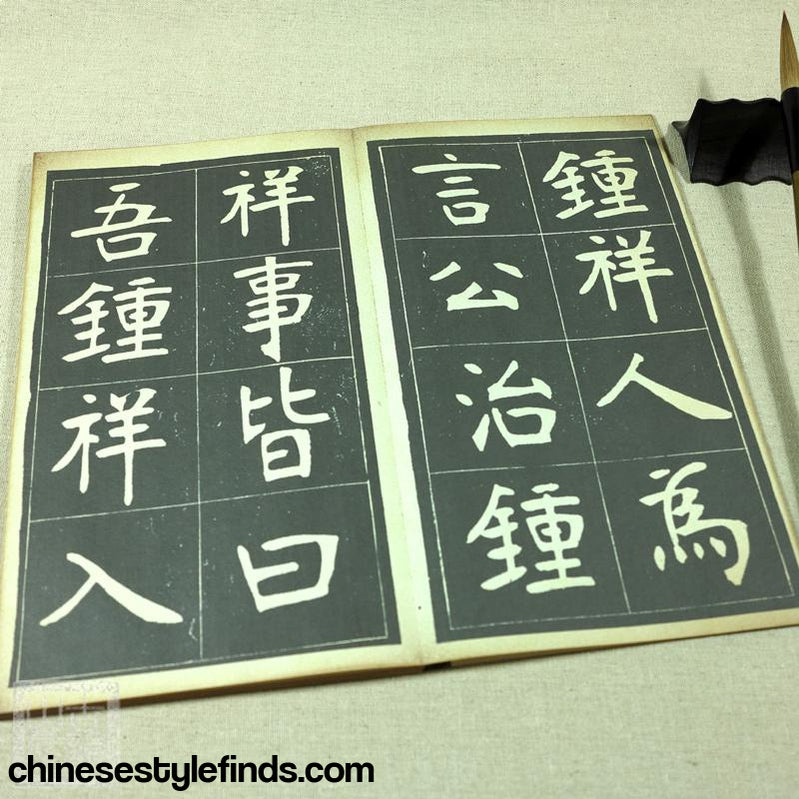 鍾祥人爲
言公治鍾
祥事皆曰
吾鍾祥入
chinesestylefinds.com